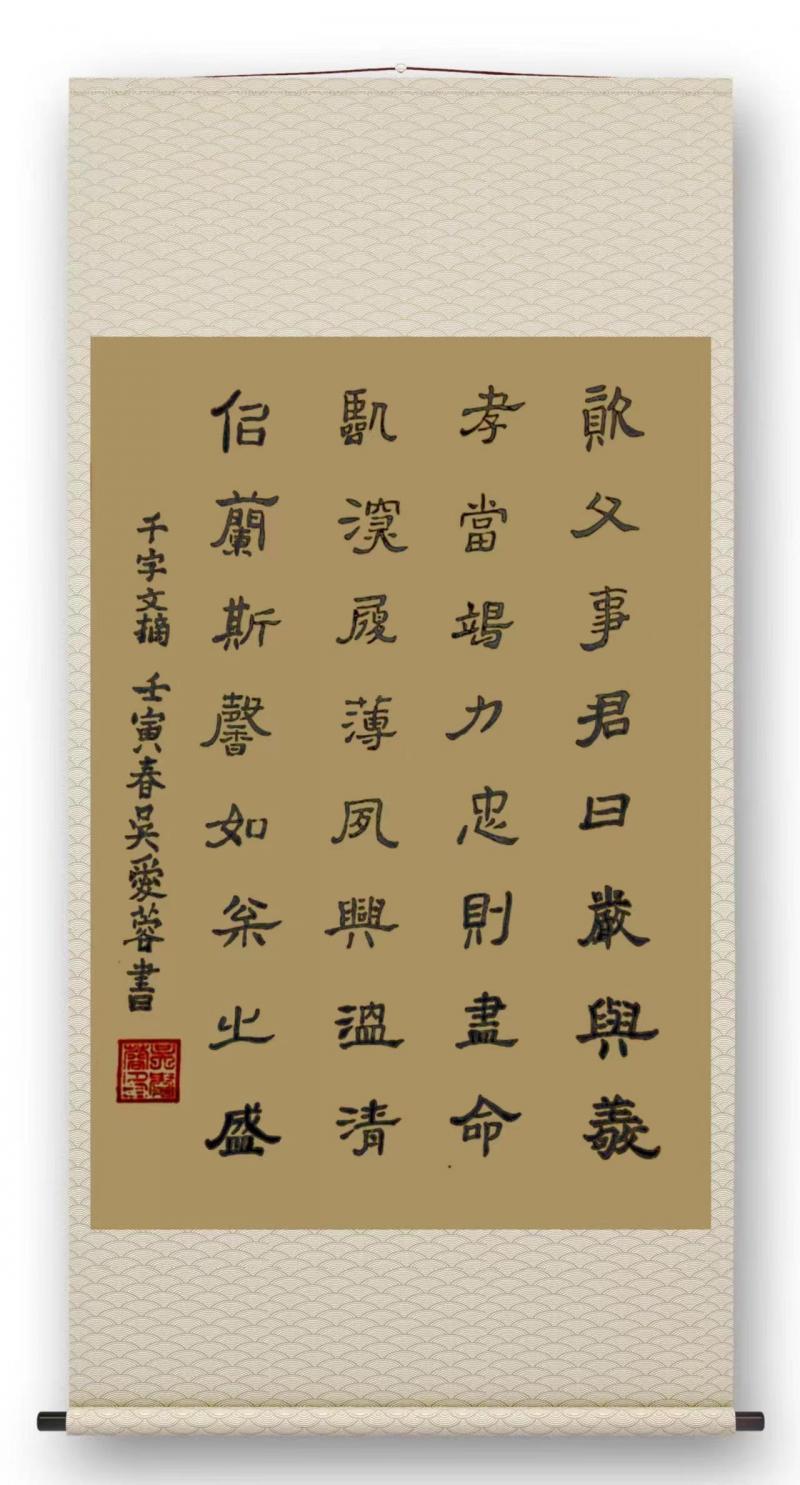 資父事君曰嚴與敬
孝當竭力忠則盡命
臨深履薄夙興溫清
似蘭斯馨如松之盛
千字文摘 壬寅春吳愛蓉書